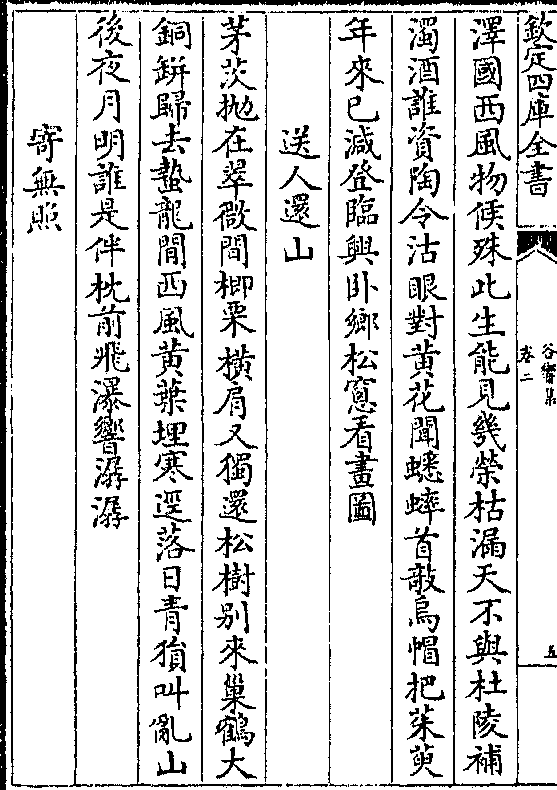 欽定四庫全書
谷響集
卷二
五
澤國西風物候殊此生能見幾榮枯漏天不與杜陵補
濁酒誰資陶令沽眼對黄花聞蟋蟀首敲烏帽把茱萸
年來已減登臨興卧鄉松窻看畫圖
送人還山
茅茨抛在翠微間楖栗横肩又獨還松樹别來巢鶴大
銅缾歸去蟄龍閒西風黄葉埋寒逕落日青猿叫亂山
後夜月明誰是伴枕前飛瀑響潺潺
寄無照